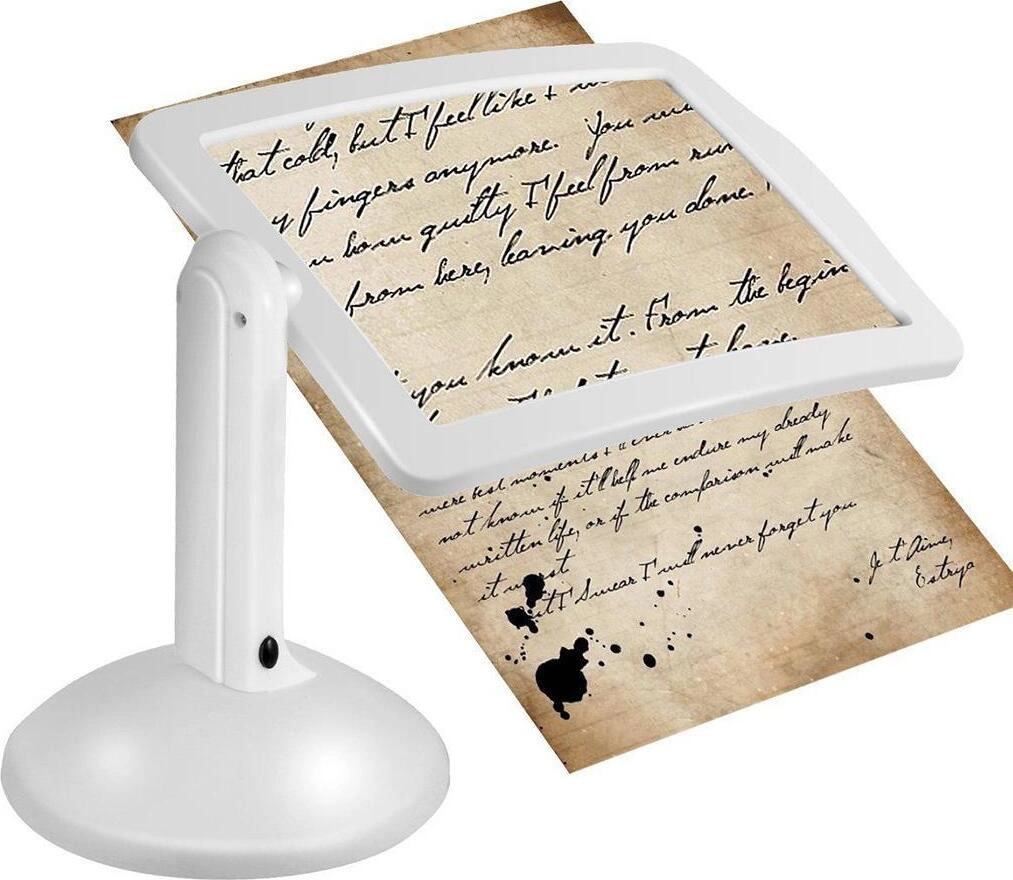 that cold, but I feel like I
fingers anymore. You
how guilty I feel from
from here, leaving you alone.
you know it. From the begin
were best moments I
not know if it'll help me endure my already
written life, or if the comparison will make
it
I Swear I will never forget you
Je t'Aime,
Estrya